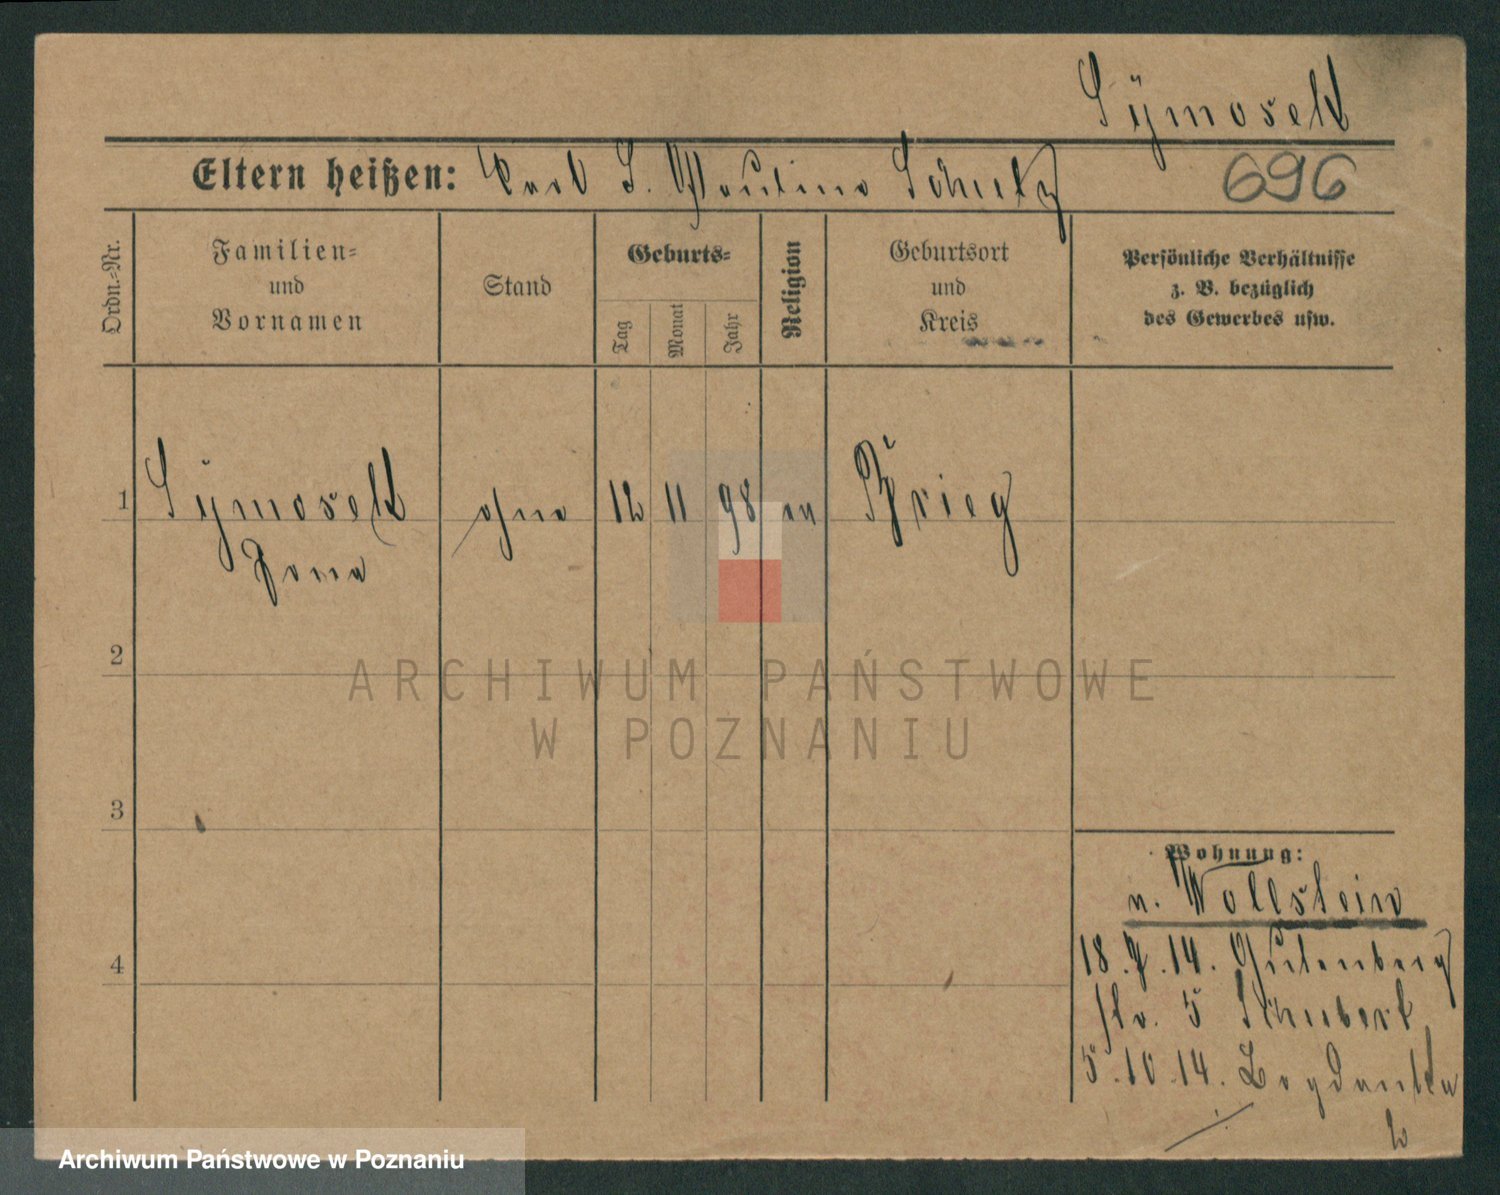 Symosek
Eltern heißen: Carl S. Pauline Schulz
696
Ordn.-Nr.
Familien-
und
Vornamen
Stand
Geburts-
Tag
Monat
Jahr
Religion
Geburtsort
und
Kreis
Persönliche Verhältnisse
z. B. bezüglich
des Gewerbes usw.
1
Symosek
ohne
12
11
98
ev
Brieg
2
ARCHIWUM PAŃSTWOWE
W POZNANIU
3
Wohnung:
n. Wollstein
4
18.7.14. Gutenberg
str. 5 Schubert
5.10.14. Bogdanka
2
Archiwum Państwowe w Poznaniu